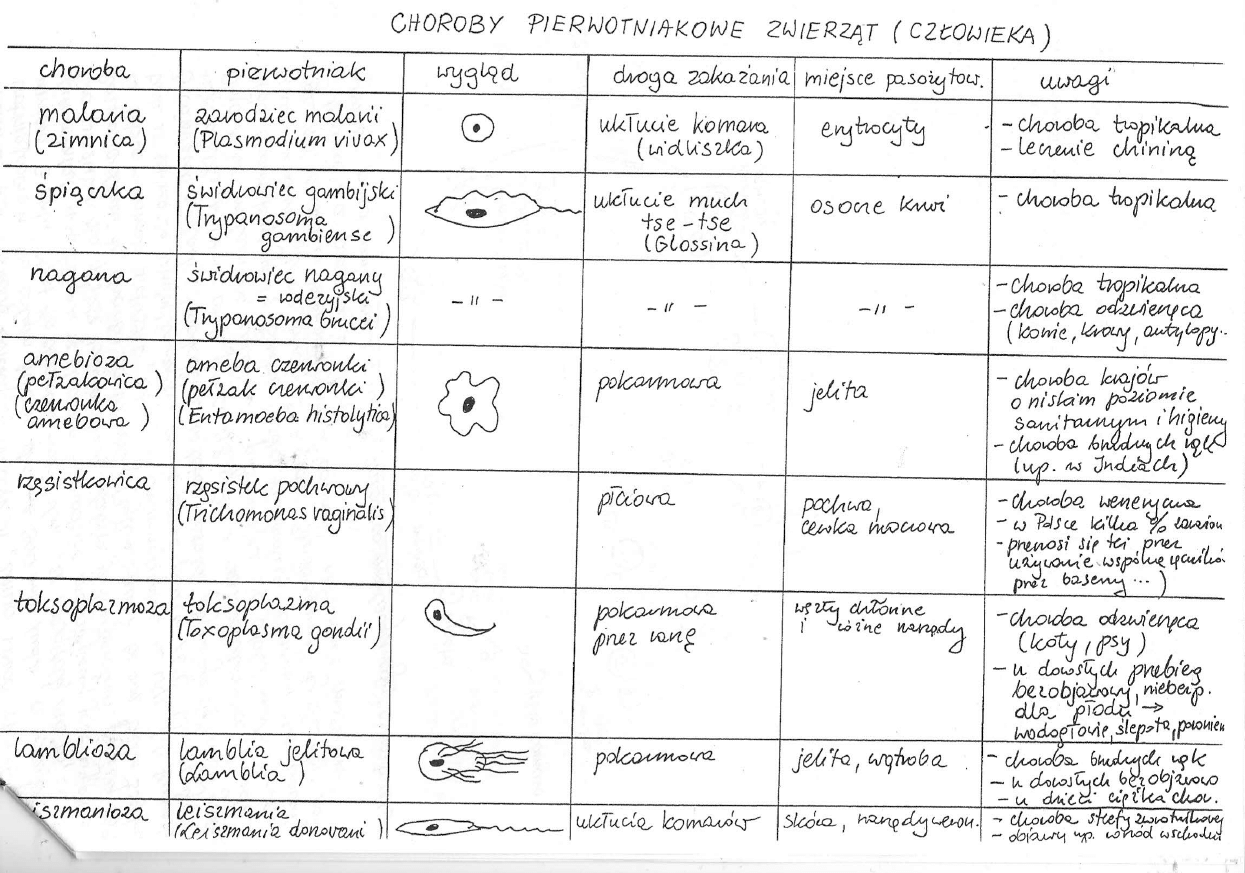 CHOROBY PIERWOTNIAKOWE ZWIERZĄT (CZŁOWIEKA)
choroba pierwotniak wygląd droga zakażania miejsce pasożytow. uwagi
malaria
(zimnica)
zarodziec malarii
(Plasmodium vivax)
ukłucie komara
(widliszka)
erytrocyty
- choroba tropikalna
- leczenie chininą
śpiączka
świdrowiec gambijski
(Trypanosoma
gambiense )
ukłucie much
tse-tse
(Glossina)
osocze krwi
- choroba tropikalna
nagana
świdrowiec nagany
= rodezyjski
(Trypanosoma brucei)
- " -
- " -
- " -
- choroba tropikalna
- choroba odzwierzęca
(konie, krowy, antylopy..
amebioza
(pełzakowica)
(czerwonka
amebowa )
ameba czerwonki
(pełzak czerwonki )
(Entamoeba histolytica)
pokarmowa
jelita
- choroba krajów
o niskim poziomie
sanitarnym i higieny
- choroba brudnych rąk
(np. w Indiach)
rzęsistkowica
rzęsistek pochwowy
(Trichomonas vaginalis)
płciowa
pochwa,
cewka moczowa
- choroba weneryczna
- w Polsce kilka %
- przenosi się też przez
używanie wspólnych ręczników
przez baseny ... )
toksoplazmoza
toksoplazma
(Toxoplasma gondii)
pokarmowa
przez ranę
węzły chłonne
i różne narządy
- choroba odzwierzęca
(koty, psy)
- u dorosłych przebieg
bezobjawowy, niebezp.
dla płodu →
wodogłowie, ślepota, poronien
lamblioza
lamblia jelitowa
(Lamblia )
pokarmowa
jelita, wątroba
- choroba brudnych rąk
- u dorosłych bezobjawowo
- u dzieci ciężka chor.
iszmanioza
leiszmania
(Leiszmania donovani )
ukłucia komarów
skóra, narządy wewn.
- choroba strefy zwrotnikowej
- objawy np. wrzód wschodni